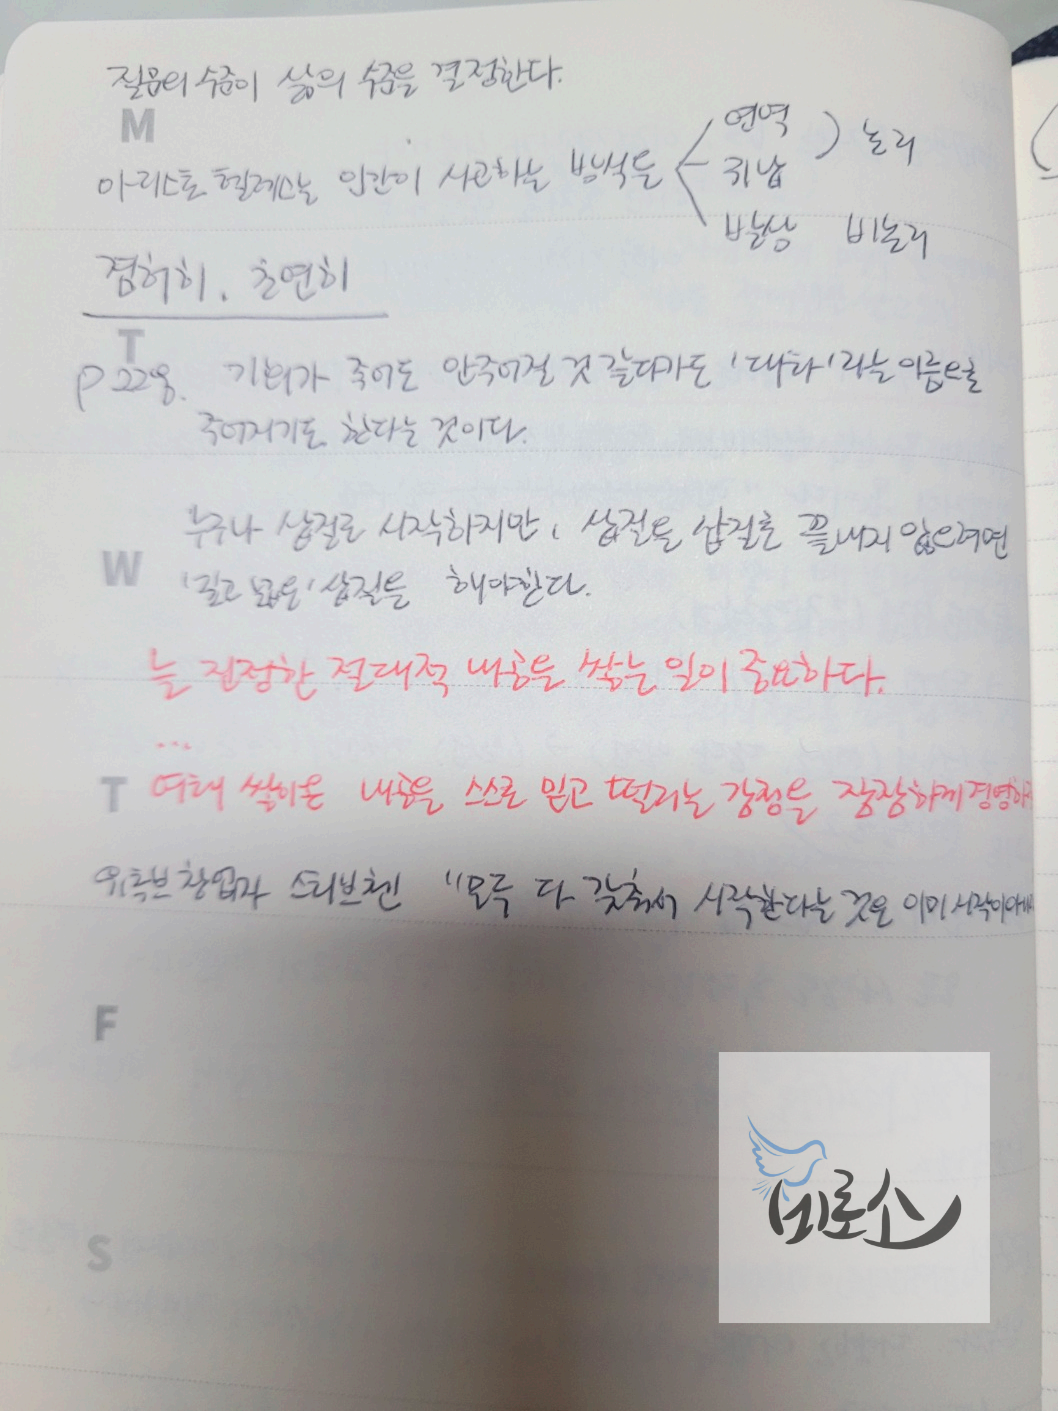 질문의 수준이 삶의 수준을 결정한다.
M
아리스토텔레스는 인간이 사고하는 방식을
연역
귀납
논리
발상 비논리
겸허히, 초연히
T
p228. 기회가 죽어도 안주어질 것 같다가도 '대타'라는 이름으로
주어지기도 한다는 것이다.
누구나 삽질로 시작하지만, 삽질을 삽질로 끝내지 않으려면
W
'깊고 넓은' 삽질을 해야한다.
늘 진정한 절대적 내공을 쌓는 일이 중요하다.
...
T
여태 쌓아온 내공을 스스로 믿고 떨리는 감정을 장장하게 경영하
유튜브 창업자 스티브첸 "모두 다 갖춰서 시작한다는 것은 이미 시작이 아니
F
S
비로소